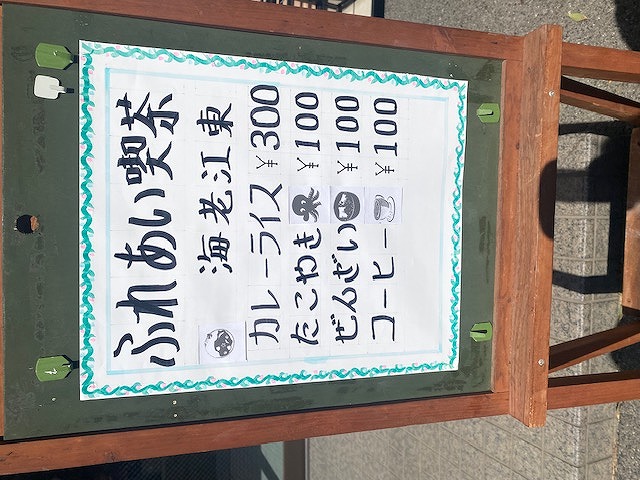 ふれあい喫茶
海老江東
カレーライス ¥300
たこやき ¥100
ぜんざい ¥100
コーヒー ¥100